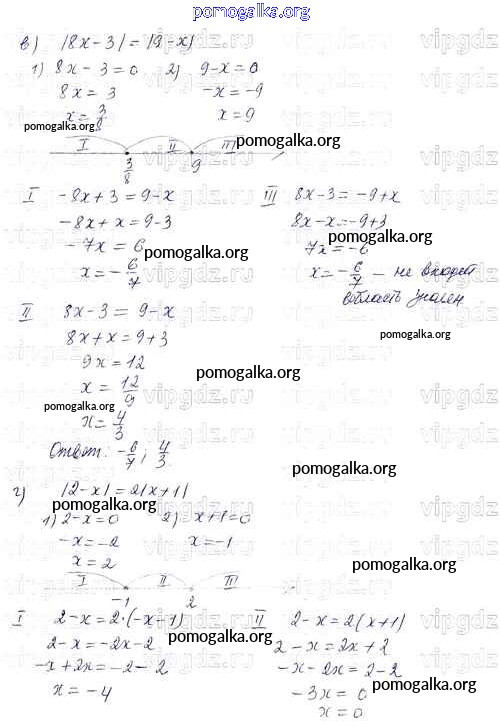 pomogalka.org
в) |8x-3| = |9-x|
1) 8x-3=0 2) 9-x=0
8x = 3 -x = -9
x = 3/8 x = 9
pomogalka.org
I II III pomogalka.org
3/8 9
I -8x+3 = 9-x
-8x+x = 9-3
-7x = 6
x = -6/7
III 8x-3 = -9+x
8x-x = -9+3
pomogalka.org
7x = -6
pomogalka.org
x = -6/7 – не входит
в область значен.
II 8x-3 = 9-x
8x+x = 9+3
pomogalka.org
9x = 12
pomogalka.org
x = 12/9
pomogalka.org
x = 4/3
Ответ: -6/7; 4/3.
pomogalka.org
г) |2-x| = 2|x+1|
pomogalka.org
1) 2-x=0 2) x+1=0
-x = -2 x = -1
x = 2
pomogalka.org
I II III
-1 2
I 2-x = 2·(-x-1)
2-x = -2x-2
pomogalka.org
-x+2x = -2-2
x = -4
II 2-x = 2(x+1)
2-x = 2x+2
-x-2x = 2-2
-3x = 0
pomogalka.org
x = 0
vipgdz.ru